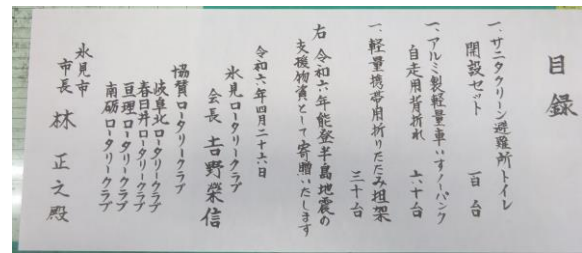 目録
一、サニタクリーン避難所トイレ
開設セット 百台
一、アルミ製軽量車いすノーパンク
自走用背折れ 六十台
一、軽量携帯用折りたたみ担架
三十台
右 令和六年能登半島地震の
支援物資として寄贈いたします
令和六年四月二十六日
氷見ロータリークラブ
会長 吉野榮信
協賛ロータリークラブ
岐阜北ロータリークラブ
春日井ロータリークラブ
亘理ロータリークラブ
南砺ロータリークラブ
氷見市
市長 林正之殿